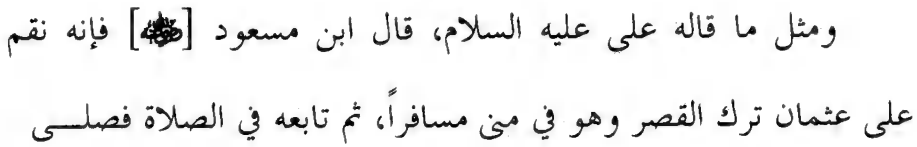 ومثل ما قاله على عليه السلام، قال ابن مسعود [] فإنه نقم
على عثمان ترك القصر وهو في منى مسافراً، ثم تابعه في الصلاة فصلــى